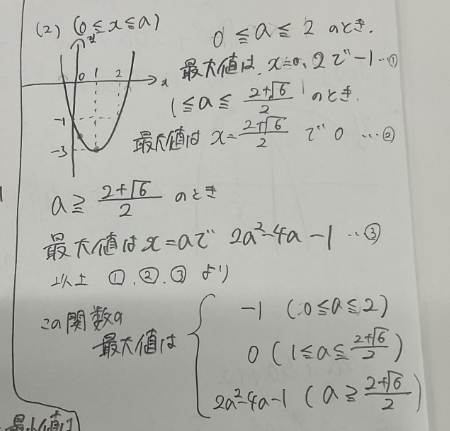 (2) (0≦x≦a)
0≦a≦2 のとき.
最大値は, x=0, 2で -1 …①
y
0 1 2 x
-1
-3
1≦a≦(2+√6)/2 のとき.
最大値は x=(2+√6)/2 で 0 …②
a≧(2+√6)/2 のとき
最大値は x=aで 2a²-4a-1 …③
以上 ①, ②, ③ より
この関数の
最大値は
-1 (0≦a≦2)
0 (1≦a≦(2+√6)/2)
2a²-4a-1 (a≧(2+√6)/2)